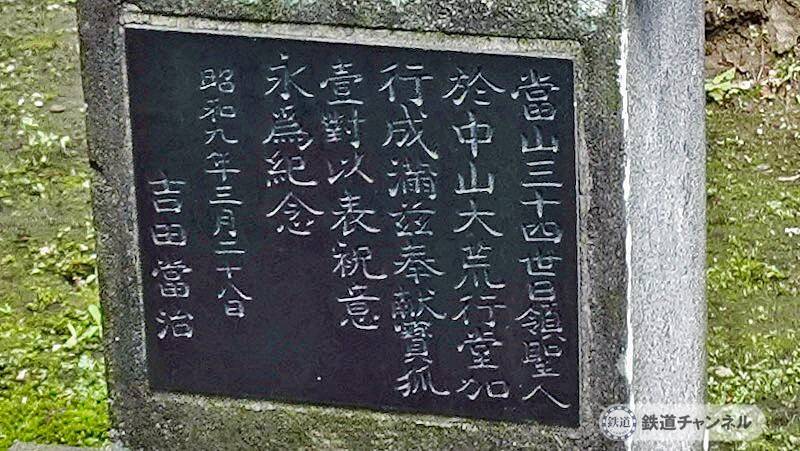 當山三十四世日領聖人
於中山大荒行堂加
行成満玆奉献寶狐
壹對以表祝意
永爲紀念
昭和九年三月二十八日
吉田當治
鉄道 鉄道チャンネル